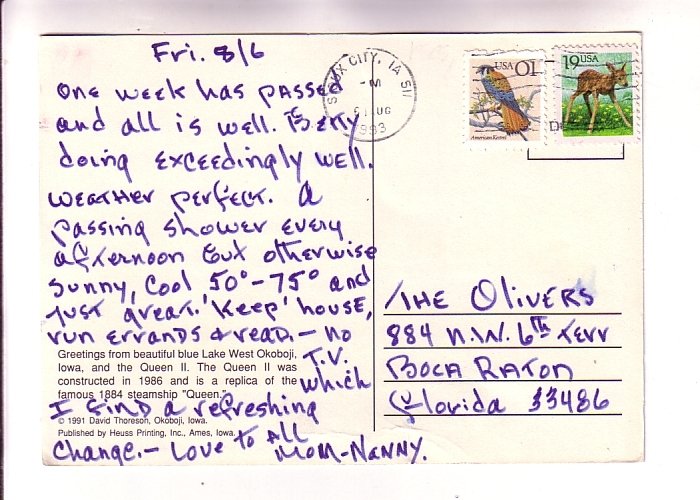 Fri. 8/6
One week has passed
and all is well. Betty
doing exceedingly well.
Weather perfect. A
passing shower every
afternoon but otherwise
sunny, cool 50°-75° and
just great. 'Keep' house,
run errands & read. - No
T.V.
which
I find a refreshing
change. - Love to all
Mom-Nanny.
Greetings from beautiful blue Lake West Okoboji,
Iowa, and the Queen II. The Queen II was
constructed in 1986 and is a replica of the
famous 1884 steamship "Queen."
© 1991 David Thoreson, Okoboji, Iowa.
Published by Heuss Printing, Inc., Ames, Iowa.
SIOUX CITY, IA 511
PM
6 AUG
1993
USA 01
American Kestrel
19 USA
The Olivers
884 N.W. 6th Terr
Boca Raton
Florida 33486